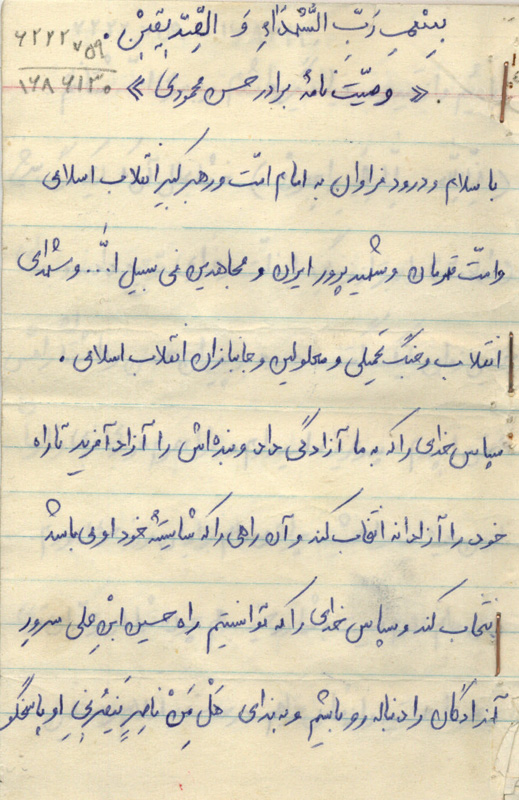 بِسْمِ رَبِّ الشُّهَدَاءِ وَ الصِّدّیقیْنْ.
۶۲۲۲۷۵۹
۱۶۸۶۱۳۰
«وصیّت نامهٔ برادر حسن محمودی»
با سلام و درود فراوان به امام امّت و رهبر کبیر انقلاب اسلامی
و امّت قهرمان و شهید پرور ایران و مجاهدین فی سبیل ا... و شهدای
انقلاب و جنگ تحمیلی و معلولین و جانبازان انقلاب اسلامی.
سپاس خدای را که به ما آزادگی داد و بنده‌اش را آزاد آفرید تا راه
خود را آزادانه انتخاب کند و آن راهی را که شایستهٔ خود او می باشد
انتخاب کند و سپاس خدای را که توانستیم راه حسین ابْنِ علی سرورِ
آزادگان را دنباله رو باشیم و به ندای هَلْ مِنْ ناصِرٍ یَنْصُرُنی او پاسخگو